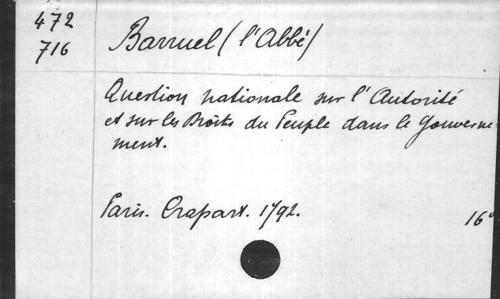 472
716
Barruel (l'Abbé)
Question nationale sur l'Autorité
et sur les Droits du Peuple dans le Gouverne-
ment.
Paris. Crapart. 1792.
16°